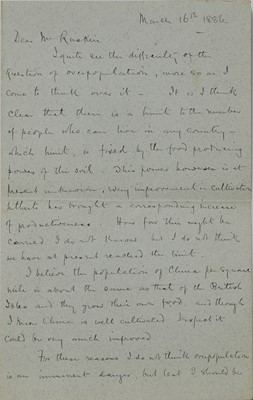 March 16th 1886
Dear Mr Ruskin
I quite see the difficulty of the
question of overpopulation, more so as I
come to think over it — It is I think
clear that there is a limit to the number
of people who can live in any country —
which limit, is fixed by the food producing
powers of the soil. This power however is at
present unknown, every improvement in cultivation
hitherto has brought a corresponding increase
of productiveness. How far this might be
carried I do not know, but I do not think
we have at present reached the limit.
I believe the population of China per square
mile is about the same as that of the British
Isles and they grow their own food, and though
I know China is well cultivated I expect it
could be very much improved
For these reasons I do not think overpopulation
is an imminent danger, but lest I should be